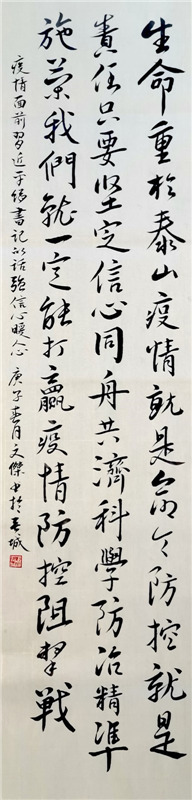 生命重於泰山疫情就是命令防控就是
責任只要坚定信心同舟共濟科學防治精準
施策我們就一定能打贏疫情防控阻擊戦
疫情面前習近平總書記的話強信心暖人心 庚子春月文傑书於春城